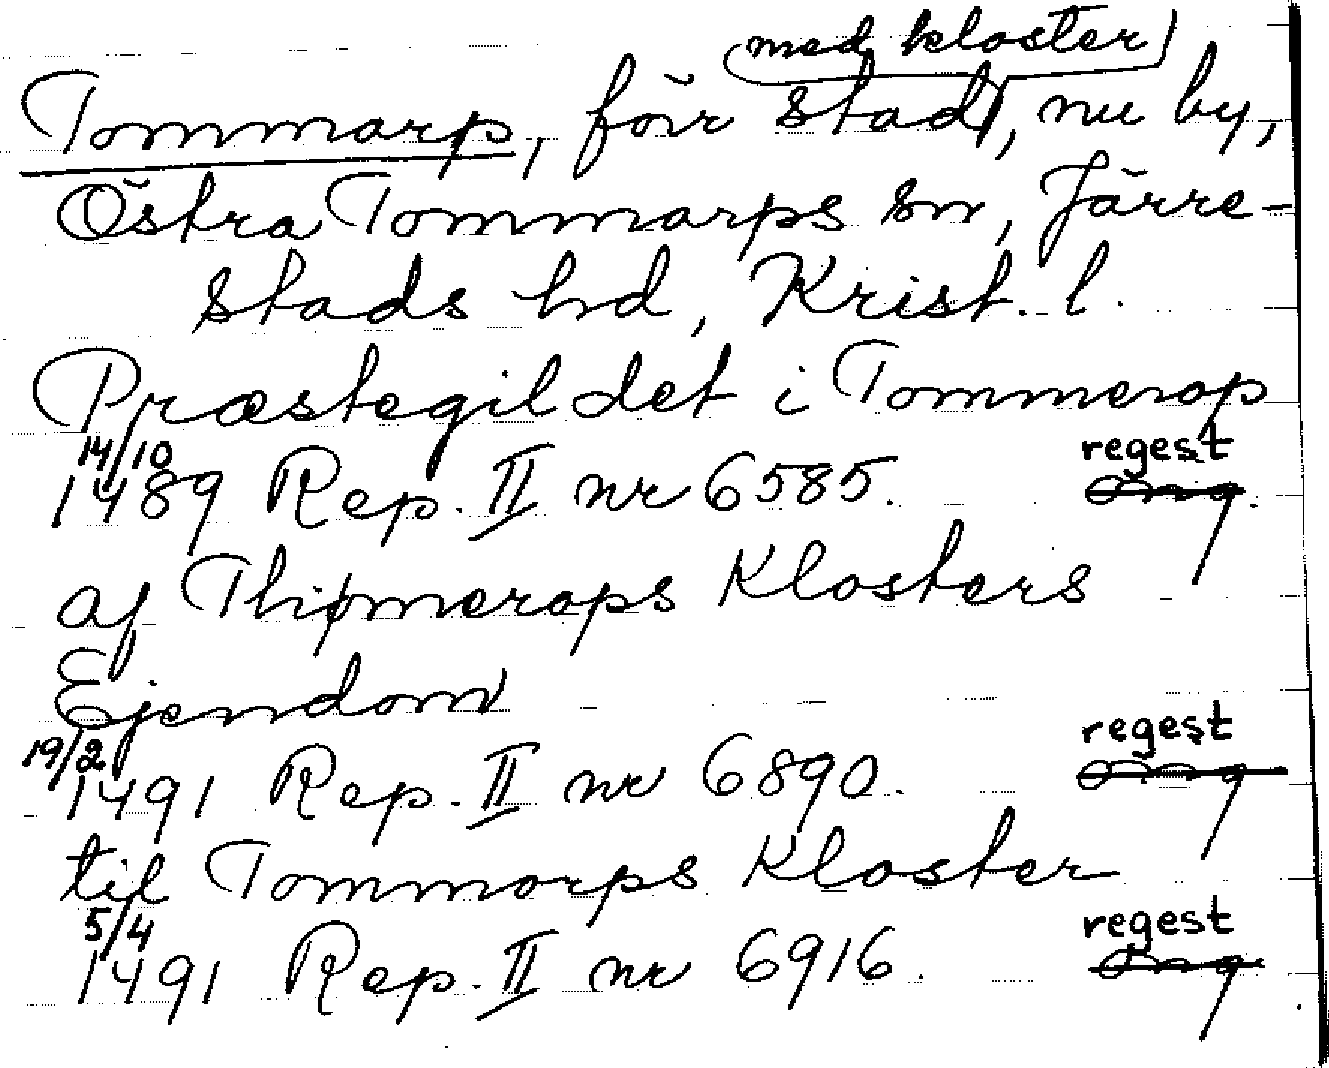 (med kloster)
Tommarp, förr stad, nu by,
Östra Tommarps sn, Järre-
stads hd, Krist. l.
Præstegildet i Tommerop
14/10 regest
1489 Rep. II nr 6585. omg.
af Thommerops Klosters
Ejendom
19/2 regest
1491 Rep. II nr 6890. omg
til Tommorps Kloster
5/4 regest
1491 Rep. II nr 6916. omg